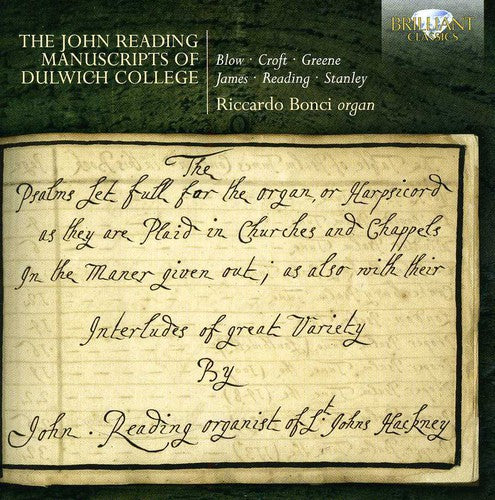 BRILLIANT
CLASSICS
THE JOHN READING
MANUSCRIPTS OF
DULWICH COLLEGE
Blow · Croft · Greene
James · Reading · Stanley
Riccardo Bonci organ
The
Psalms Set full for the organ, or Harpsicord
as they are Plaid in Churches and Chappels
In the Maner given out; as also with their
Interludes of great Variety
By
John . Reading organist of St. Johns Hackney